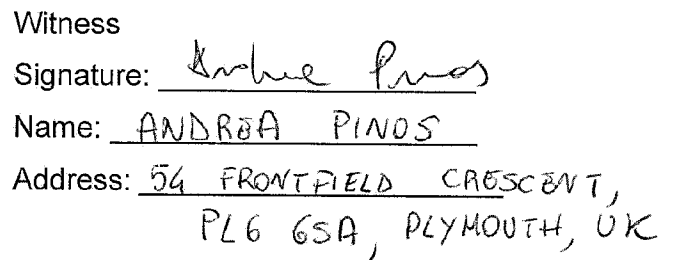 Witness
Signature: Andrea Pinos
Name: ANDREA PINOS
Address: 54 FRONTFIELD CRESCENT,
PL6 6SA, PLYMOUTH, UK